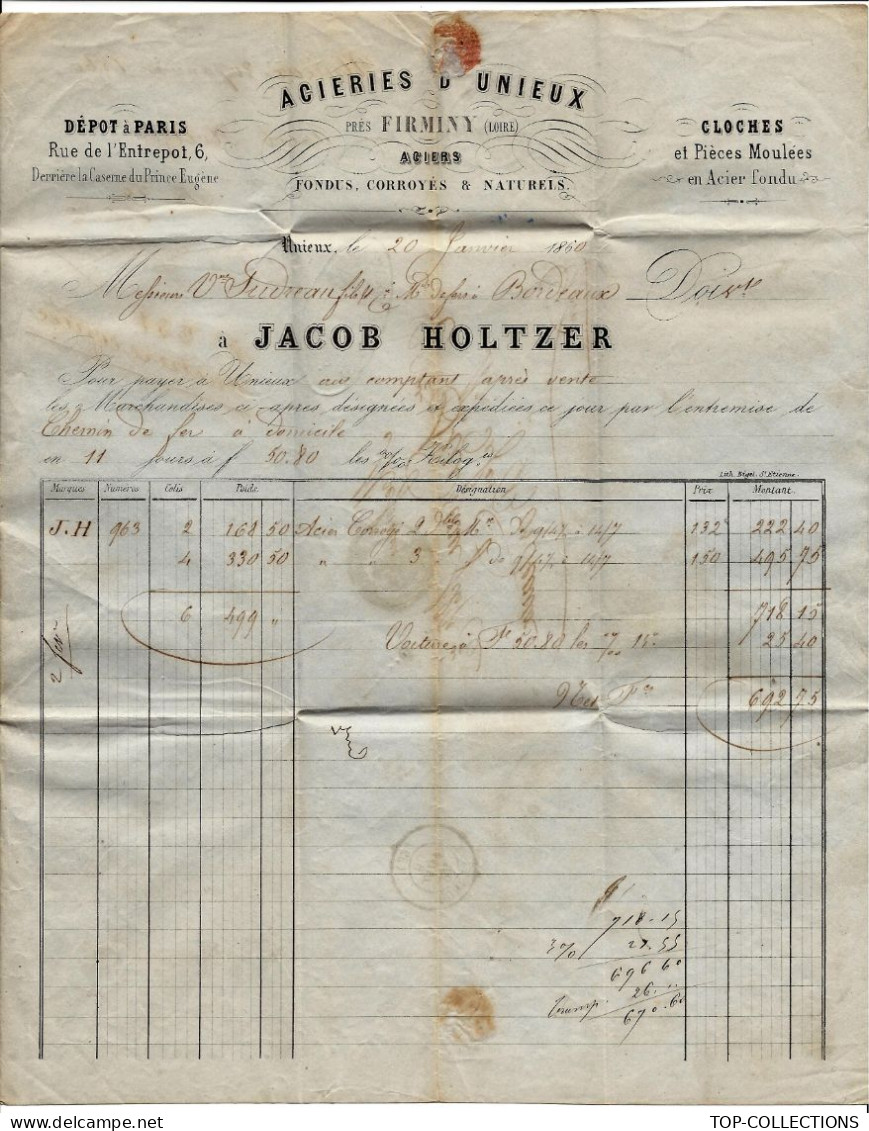 ACIERIES D'UNIEUX
PRÈS FIRMINY (LOIRE)
ACIERS
FONDUS, CORROYÉS & NATURELS.
DÉPOT à PARIS
Rue de l'Entrepot, 6,
Derrière la Caserne du Prince Eugène
CLOCHES
et Pièces Moulées
en Acier fondu
Unieux, le 20 Janvier 1860
Messieurs Vve fils & Cie Mds de fer à Bordeaux Doivt
à JACOB HOLTZER
Pour payer à Unieux au comptant après vente
les Marchandises ci-après désignées et expédiées ce jour par l'entremise de
Chemin de fer à domicile
en 11 jours à f 50.80 les %00 Kilogs
Lith. Nogel, St Etienne.
Marques Numéros Colis Poids Désignation Prix Montant
J.H 963 2 168 50 Acier Corroyé 2 132 222 40
4 330 50 " " 3 150 495 75
6 499 " 718 15
Voiture à F 50.80 les 25 40
Net Fcs 692 75
718.15
3% 21.55
696 60
Transp. 26 "
670.60
TOP-COLLECTIONS